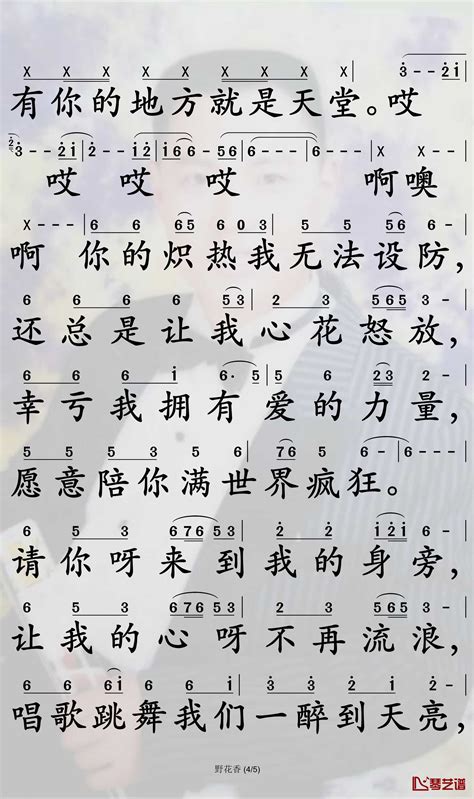 X X X X X X X X X X | 3 - - 2 i
有你的地方就是天堂。哎
2 3 - - 2 i | 2 - - i 2 | i 6 6 - 5 6 | 6 - - - | 6 - - -
哎 哎 哎 啊噢
X - - - | 6 6 6 65 6 3 | 5 5 56 6 - | 6 - - -
啊 你的炽热我无法设防,
6 6 6 6 6 53 | 2 2 3 565 | 5 - - - |
还总是让我心花怒放,
6 6 6 i 6· 5 | 6 5 2 23 2 | 2 - - - |
幸亏我拥有爱的力量,
5 5 5 5 2 3 | 5 765 6 | 6 - - - |
愿意陪你满世界疯狂。
6 6 5 3 676 53 | 2 2 i 2i | i - - - |
请你呀来到我的身旁,
6 5 3 676 53 | 2 5 3 565 | 5 - - - |
让我的心呀不再流浪,
6 6 6i 6 6 5 | 6 2 3 3 2 | 2 - - - |
唱歌跳舞我们一醉到天亮,
野花香 (4/5)
琴艺谱